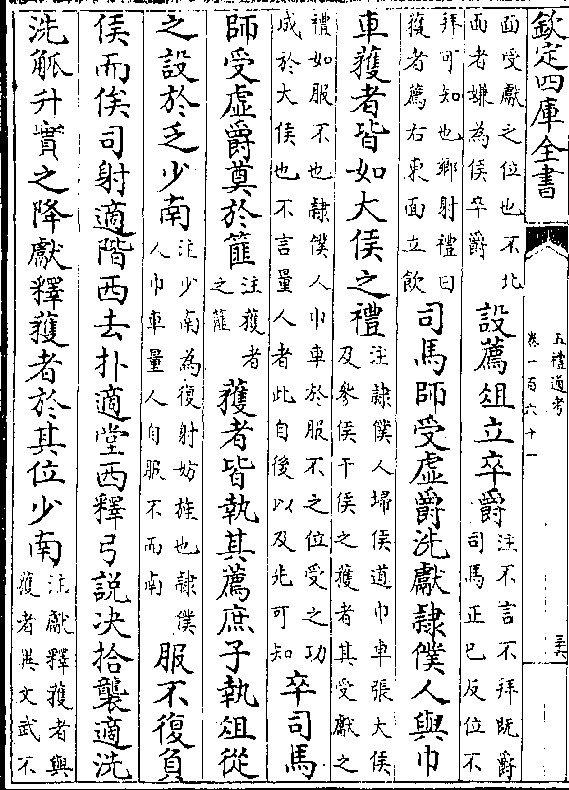 欽定四庫全書
五禮通考
卷一百六十一
面受獻之位也不北
面者嫌為侯卒爵
設薦俎立卒爵
注不言不拜既爵
司馬正已反位不
拜可知也鄉射禮曰
獲者薦右東面立飲
司馬師受虛爵洗獻隸僕人與巾
車獲者皆如大侯之禮
注隸僕人埽侯道巾車張大侯
及參侯干侯之獲者其受獻之
禮如服不也隸僕人巾車於服不之位受之功
成於大侯也不言量人者此自後以及先可知
卒司馬
師受虛爵奠於篚
注獲者
之篚
獲者皆執其薦庶子執俎從
之設於乏少南
注少南為復射妨旌也隸僕
人巾車量人自服不而南
服不復負
侯而俟司射適階西去扑適堂西釋弓説決拾襲適洗
洗觚升實之降獻釋獲者於其位少南
注獻釋獲者與
獲者異文武不